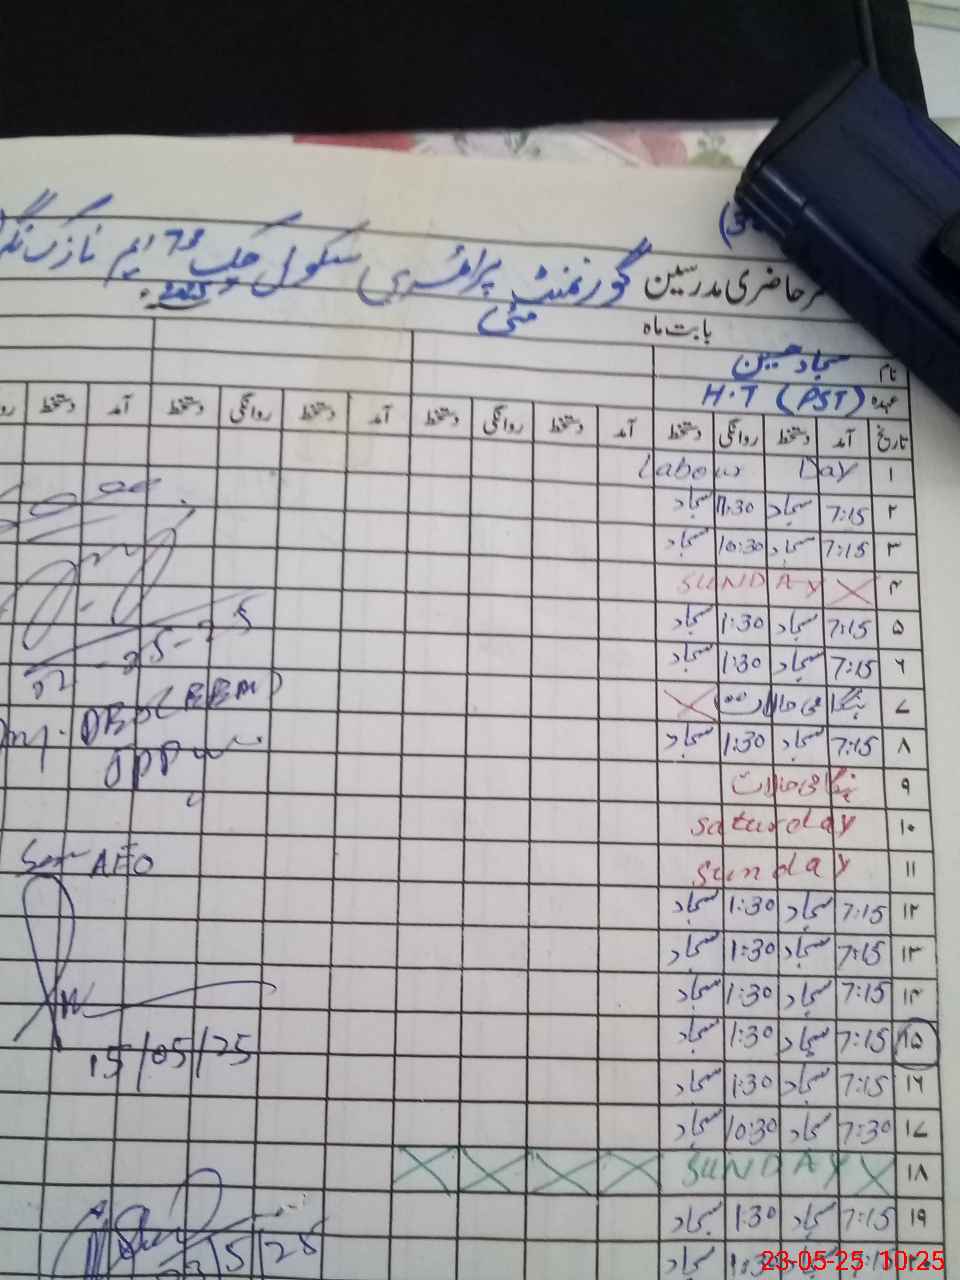 حاضری مدرسین گورنمنٹ پرائمری سکول چک
بابت ماہ مئی 2025
نام سجاد حسین
عہدہ H.T (PST)
تاریخ آمد دستخط روانگی دستخط آمد دستخط روانگی دستخط آمد دستخط روانگی دستخط آمد دستخط
۱ Labour Day
۲ 7:15 سجاد 11:30 سجاد
۳ 7:15 سجاد 10:30 سجاد
۴ SUNDAY
۵ 7:15 سجاد 1:30 سجاد
۶ 7:15 سجاد 1:30 سجاد
۷ ہنگامی حالات
۸ 7:15 سجاد 1:30 سجاد
۹ ہنگامی حالات
۱۰ Saturday
۱۱ Sunday
۱۲ 7:15 سجاد 1:30 سجاد
۱۳ 7:15 سجاد 1:30 سجاد
۱۴ 7:15 سجاد 1:30 سجاد
۱۵ 7:15 سجاد 1:30 سجاد
۱۶ 7:15 سجاد 1:30 سجاد
۱۷ 7:30 سجاد 10:30 سجاد
۱۸ SUNDAY
۱۹ 7:15 سجاد 1:30 سجاد
AEO
15/05/25
23-05-25 10:25